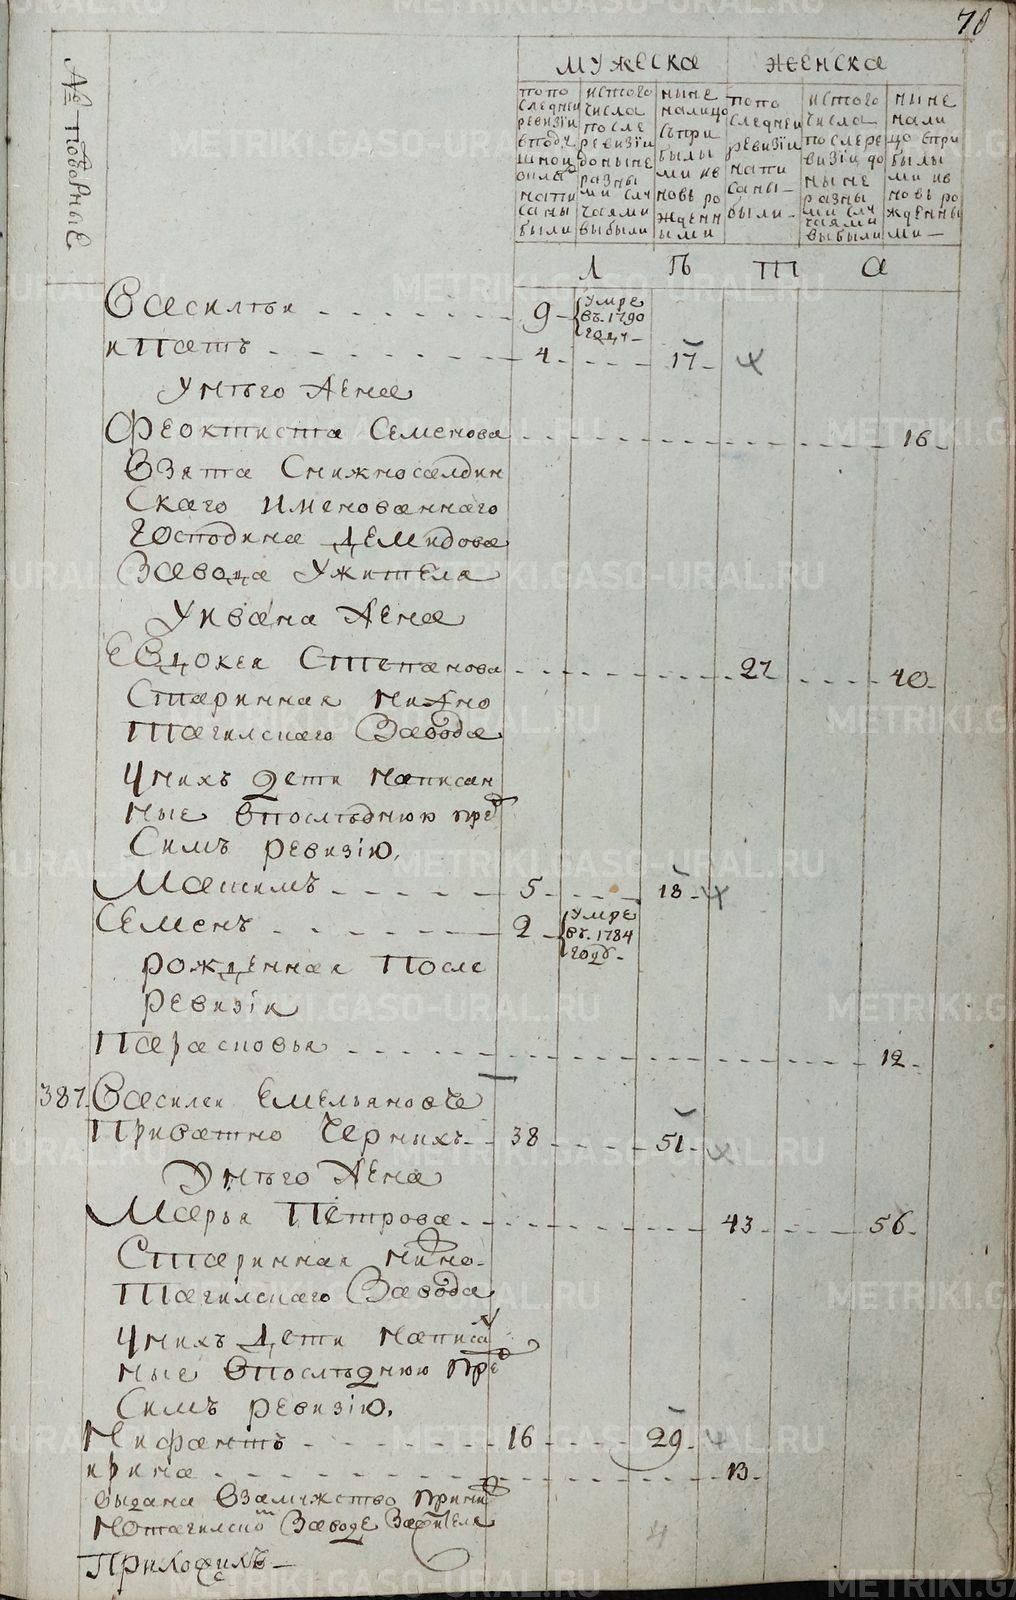 70
№ подворные
МУЖЕСКА
ЖЕНСКА
по по
следней
ревизии
в поду
шной
окла
напи
саны
были
ис того
числа
после
ревизiи
до ныне
разны
ми слу
чаями
выбыли
ныне
на лицо
с при
былы
ми и в
новь ро
жденн
ыми
по по
следней
ревизiи
напи
саны
были
ис того
числа
после ре
визiи до
ныне
разны
ми слу
чаями
выбыли
ныне
на ли
цо с при
былы
ми и в
новь ро
жденны
ми
Л Ѣ Т А
Василеи 9 умре
въ 1790
году
ипатъ 4 17
У нѣго жена
Феоктиста Семенова 16
взята с нижносалдин
скаго имянованнаго
господина демидова
завода у жителя
У ивана жена
Евдокея Степанова 27 40
старинная нижно
тагилскаго завода
у нихъ дети написан
ные в послѣднюю пред
симъ ревизiю.
Максимъ 5 18
Семенъ 2 умре
въ 1784
году
рожденная после
ревизiи
Парасковья 12
387 Василеи Емельяновъ
Приватно Черныхъ 38 51
У нѣго жена
Марья Петрова 43 56
старинная нижно
тагилскаго завода
у нихъ дети написа
ные в послѣднюю пред
симъ ревизiю.
Нифантъ 16 29
ирина 13
выдана в замужство при ниж
нотагилском заводе за жителя